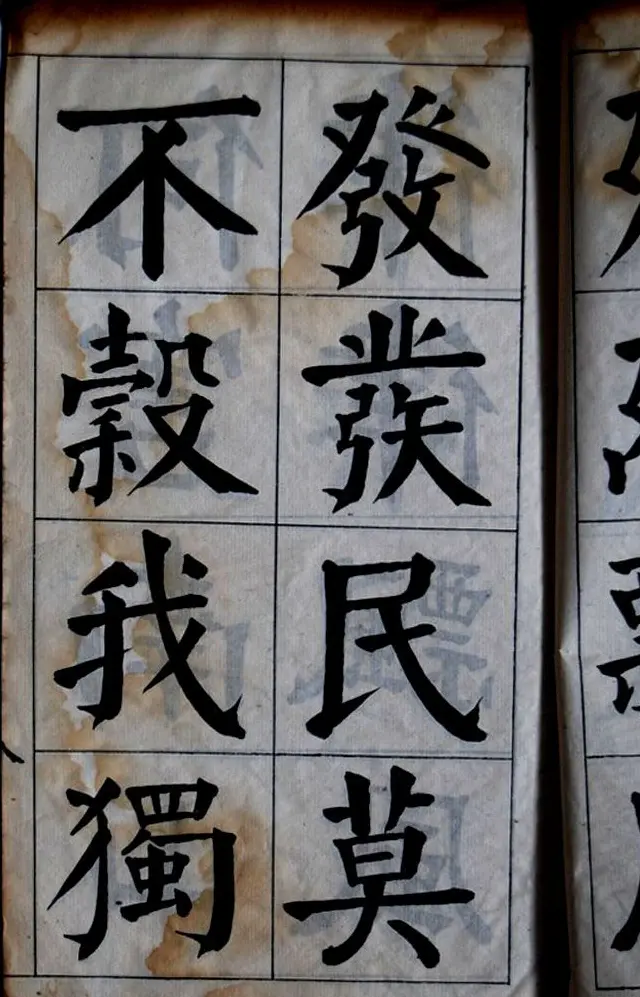 發發民莫
不穀我獨